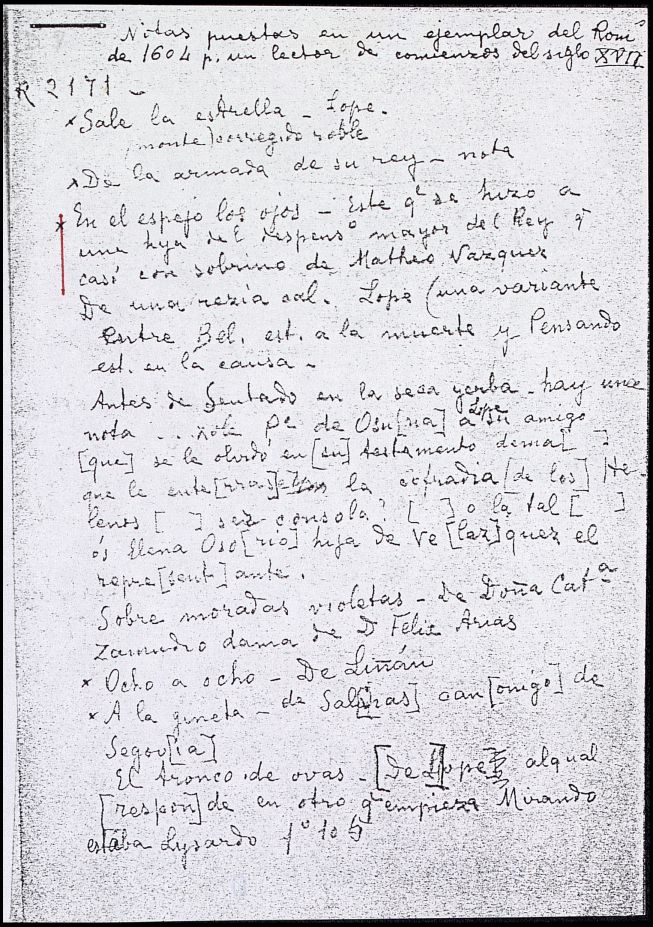 Notas puestas en un ejemplar del Rom^o
de 1604 p. un lector de comienzos del siglo XVII
R 2171 -
x Sale la estrella - Lope.
(monte) corregido roble
x De la armada de su rey - nota
x En el espejo los ojos - Este q^e se hizo a
una hija del despens^o mayor del Rey q^e
casi con sobrino de Matheo Vazquez
De una rezia cal. Lope (una variante
entre Bel. est. a la muerte y Pensando
est. en la causa.
Antes de Sentado en la seca yerba - hay una
nota ... P^e de Osu[na] a Lope su amigo
[que] se le olvidó en [su] testamento dema[ ]
que le ente[rras]en la cofradia [de los] He-
lenos [ ] sez consola [ ] o la tal [ ]
ós Elena Oso[rio] hija de Ve[laz]quez el
repre[sent]ante.
Sobre moradas violetas - De Doña Cat^a
Zamudio dama de D Felix Arias
x Ocho a ocho - De Liñán
x A la gineta - de Sal[inas] can[onigo] de
Segov[ia]
El tronco de ovas - [De Lope] al qual
[respon]de en otro q^e empieza Mirando
estaba Lysardo 1º 105